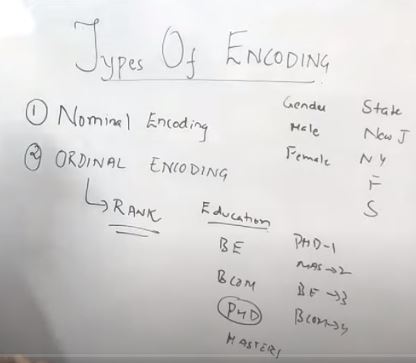 Types Of ENCODING
① Nominal Encoding
② ORDINAL ENCODING
↳ RANK
Gender
Male
Female
State
New J
NY
F
S
Education
BE
BCOM
PHD
MASTERS
PHD-1
MAS→2
BE→3
BCOM→4